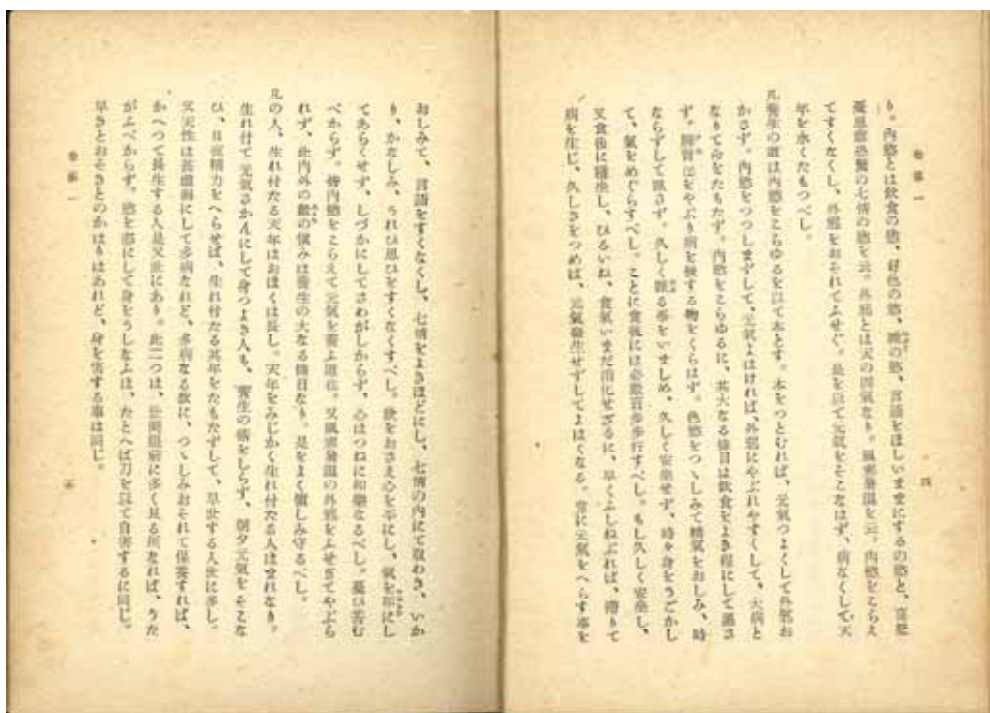 巻第一
四
り。内慾とは飲食の慾、好色の慾、睡の慾、言語をほしいままにするの慾と、喜怒
憂思悲恐驚の七情の慾を云。外邪とは天の四氣なり。風寒暑濕を云。内慾をこらえ
てすくなくし、外邪をおそれてふせぐ。是を以て元氣をそこなはず、病なくして天
年を永くたもつべし。
凡養生の道は内慾をこらゆるを以て本とす。本をつとむれば、元氣つよくして外邪お
かさず。内慾をつつしまずして、元氣よはければ、外邪にやぶれやすくして、大病と
なりて命をたもたず。内慾をこらゆるに、其大なる條目は飲食をよき程にして過さ
ず。脾胃をやぶり病を發する物をくらはず。色慾をつゝしみて精氣をおしみ、時
ならずして臥さず。久しく睡る事をいましめ、久しく安坐せず、時々身をうごかし
て、氣をめぐらすべし。ことに食後には必數百歩歩行すべし。もし久しく安坐し、
又食後に穩坐し、ひるいね、食氣いまだ消化せざるに、早くふしねぶれば、滯りて
病を生じ、久しきをつめば、元氣發生せずしてよはくなる。常に元氣をへらす事を
おしみて、言語をすくなくし、七情をよきほどにし、七情の内にて取わき、いか
り、かなしみ、うれひ思ひをすくなくすべし。慾をおさえ心を平にし、氣を和にし
てあらくせず、しづかにしてさわがしからず、心はつねに和樂なるべし。憂ひ苦む
べからず。皆内慾をこらえて元氣を養ふ道也。又風寒暑濕の外邪をふせぎてやぶら
れず。此内外の數の愼みは養生の大なる條目なり。是をよく愼しみ守るべし。
凡の人、生れ付たる天年はおほくは長し。天年をみじかく生れ付たる人はまれなり。
生れ付て元氣さかんにして身つよき人も、養生の術をしらず、朝夕元氣をそこな
ひ、日夜精力をへらせば、生れ付たる其年をたもたずして、早世する人世に多し。
又天性は甚虚弱にして多病なれど、多病なる故に、つゝしみおそれて保養すれば、
かへつて長生する人是又世にあり。此二つは、世間眼前に多く見る所なれば、うた
がふべからず。慾を恣にして身をうしなふは、たとへば刀を以て自害するに同じ。
早きとおそきとのかはりはあれど、身を害する事は同じ。
巻第一
五